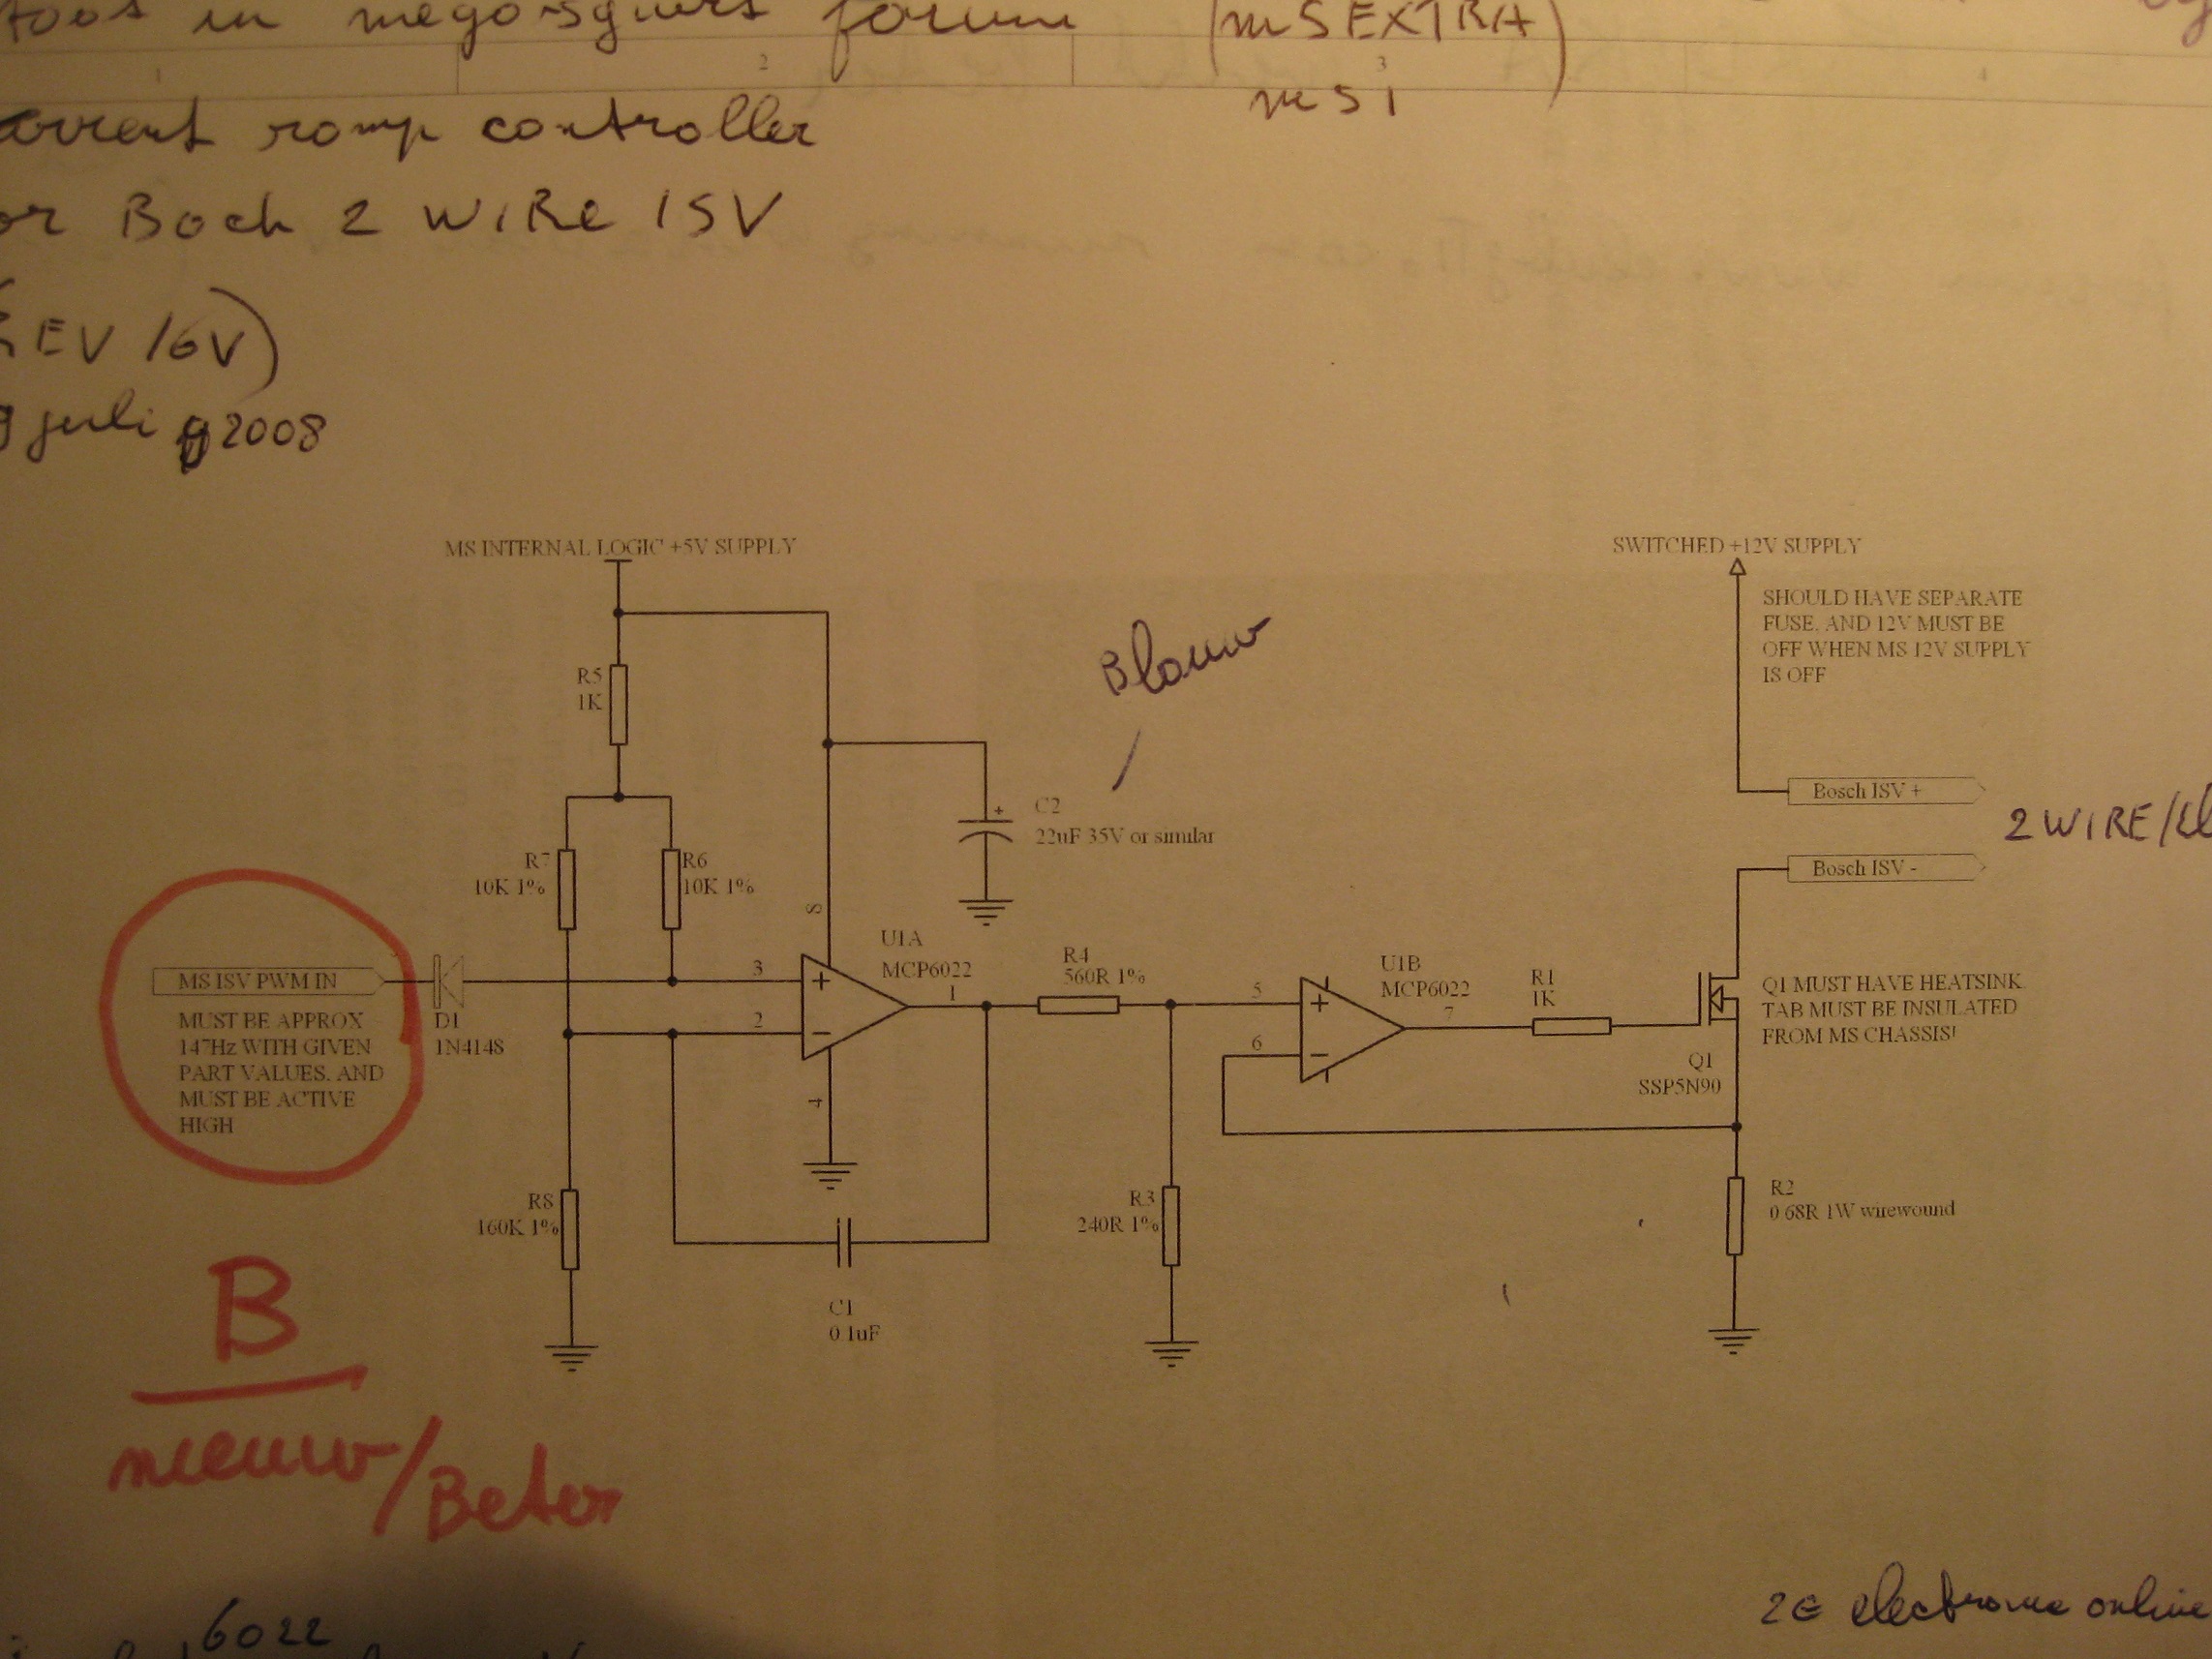 in forum (MSEXTRA)
2 3
ms1
ramp controller
Boch 2 WiRe ISV
EV 16V)
juli 2008
MS INTERNAL LOGIC +5V SUPPLY
SWITCHED +12V SUPPLY
SHOULD HAVE SEPARATE
FUSE. AND 12V MUST BE
OFF WHEN MS 12V SUPPLY
IS OFF
Blauw
R5
1K
Bosch ISV +
C2
+
22uF 35V or similar
2 WIRE/
R7
10K 1%
R6
10K 1%
Bosch ISV -
8
U1A
MCP6022
R4
560R 1%
U1B
MCP6022
R1
1K
MS ISV PWM IN
3
+
1
5
+
7
Q1 MUST HAVE HEATSINK
TAB MUST BE INSULATED
FROM MS CHASSIS!
MUST BE APPROX
147Hz WITH GIVEN
PART VALUES. AND
MUST BE ACTIVE
HIGH
D1
1N4148
2
6
Q1
SSP5N90
4
R8
160K 1%
R3
240R 1%
R2
0.68R 1W wirewound
C1
0.1uF
B
nieuw/Beter
2€ electronic online
6022